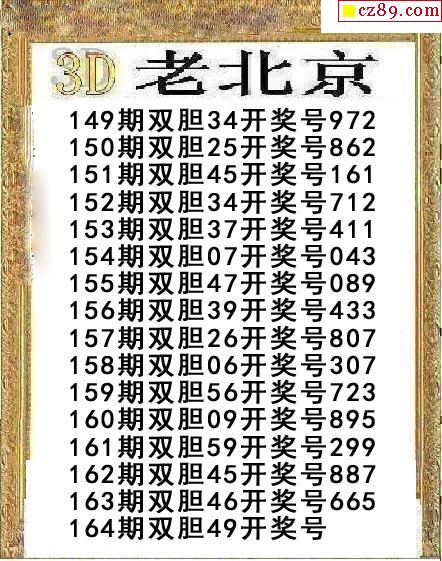 cz89.com
3D 老北京
149期双胆34开奖号972
150期双胆25开奖号862
151期双胆45开奖号161
152期双胆34开奖号712
153期双胆37开奖号411
154期双胆07开奖号043
155期双胆47开奖号089
156期双胆39开奖号433
157期双胆26开奖号807
158期双胆06开奖号307
159期双胆56开奖号723
160期双胆09开奖号895
161期双胆59开奖号299
162期双胆45开奖号887
163期双胆46开奖号665
164期双胆49开奖号